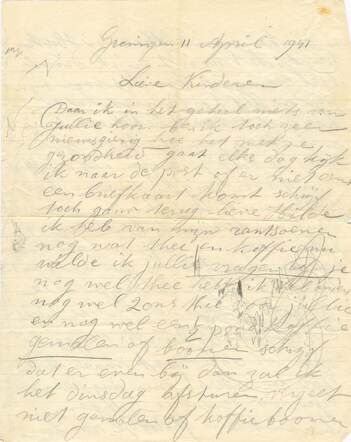 Groningen 11 April 1941
Lieve Kinderen
Daar ik in het geheel niets van
jullie hoor ben ik toch zeer
nieuwsgierig hoe het met je
gezondheid gaat elke dag kijk
ik naar de post of er niet eens
een briefkaart komt schrijf
toch gauw terug lieve Hilde
ik heb van mijn rantsoenen
nog wat thee en koffie nu
wilde ik jullie vragen of je
nog wel thee hebt ik
nog wel 2 ons thee voor jullie
en nog wel een pond koffie
gemalen of boonen schrijf
dat er even bij dan zal ik
het dinsdag afsturen
niet gemalen of koffieboonen